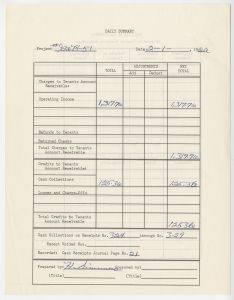 DAILY SUMMARY
Project Date 2-1- 19
TOTAL ADJUSTMENTS NET TOTAL
Add Deduct
Charges to Tenants Account Receivable:
Operating Income
Refunds to Tenants
Returned Checks
Total Charges to Tenants Account Receivable
Credits to Tenants Account Receivable:
Cash Collections 125.36 125.36
Losses and Charge-Offs
Total Credits to Tenants Account Receivable 125.36
Cash Collections on Receipts No. 324 through No. 329
Except Voided Nos.
Recorded: Cash Receipts Journal Page No. 21
Prepared by: Approved by:
(Title) (Title)